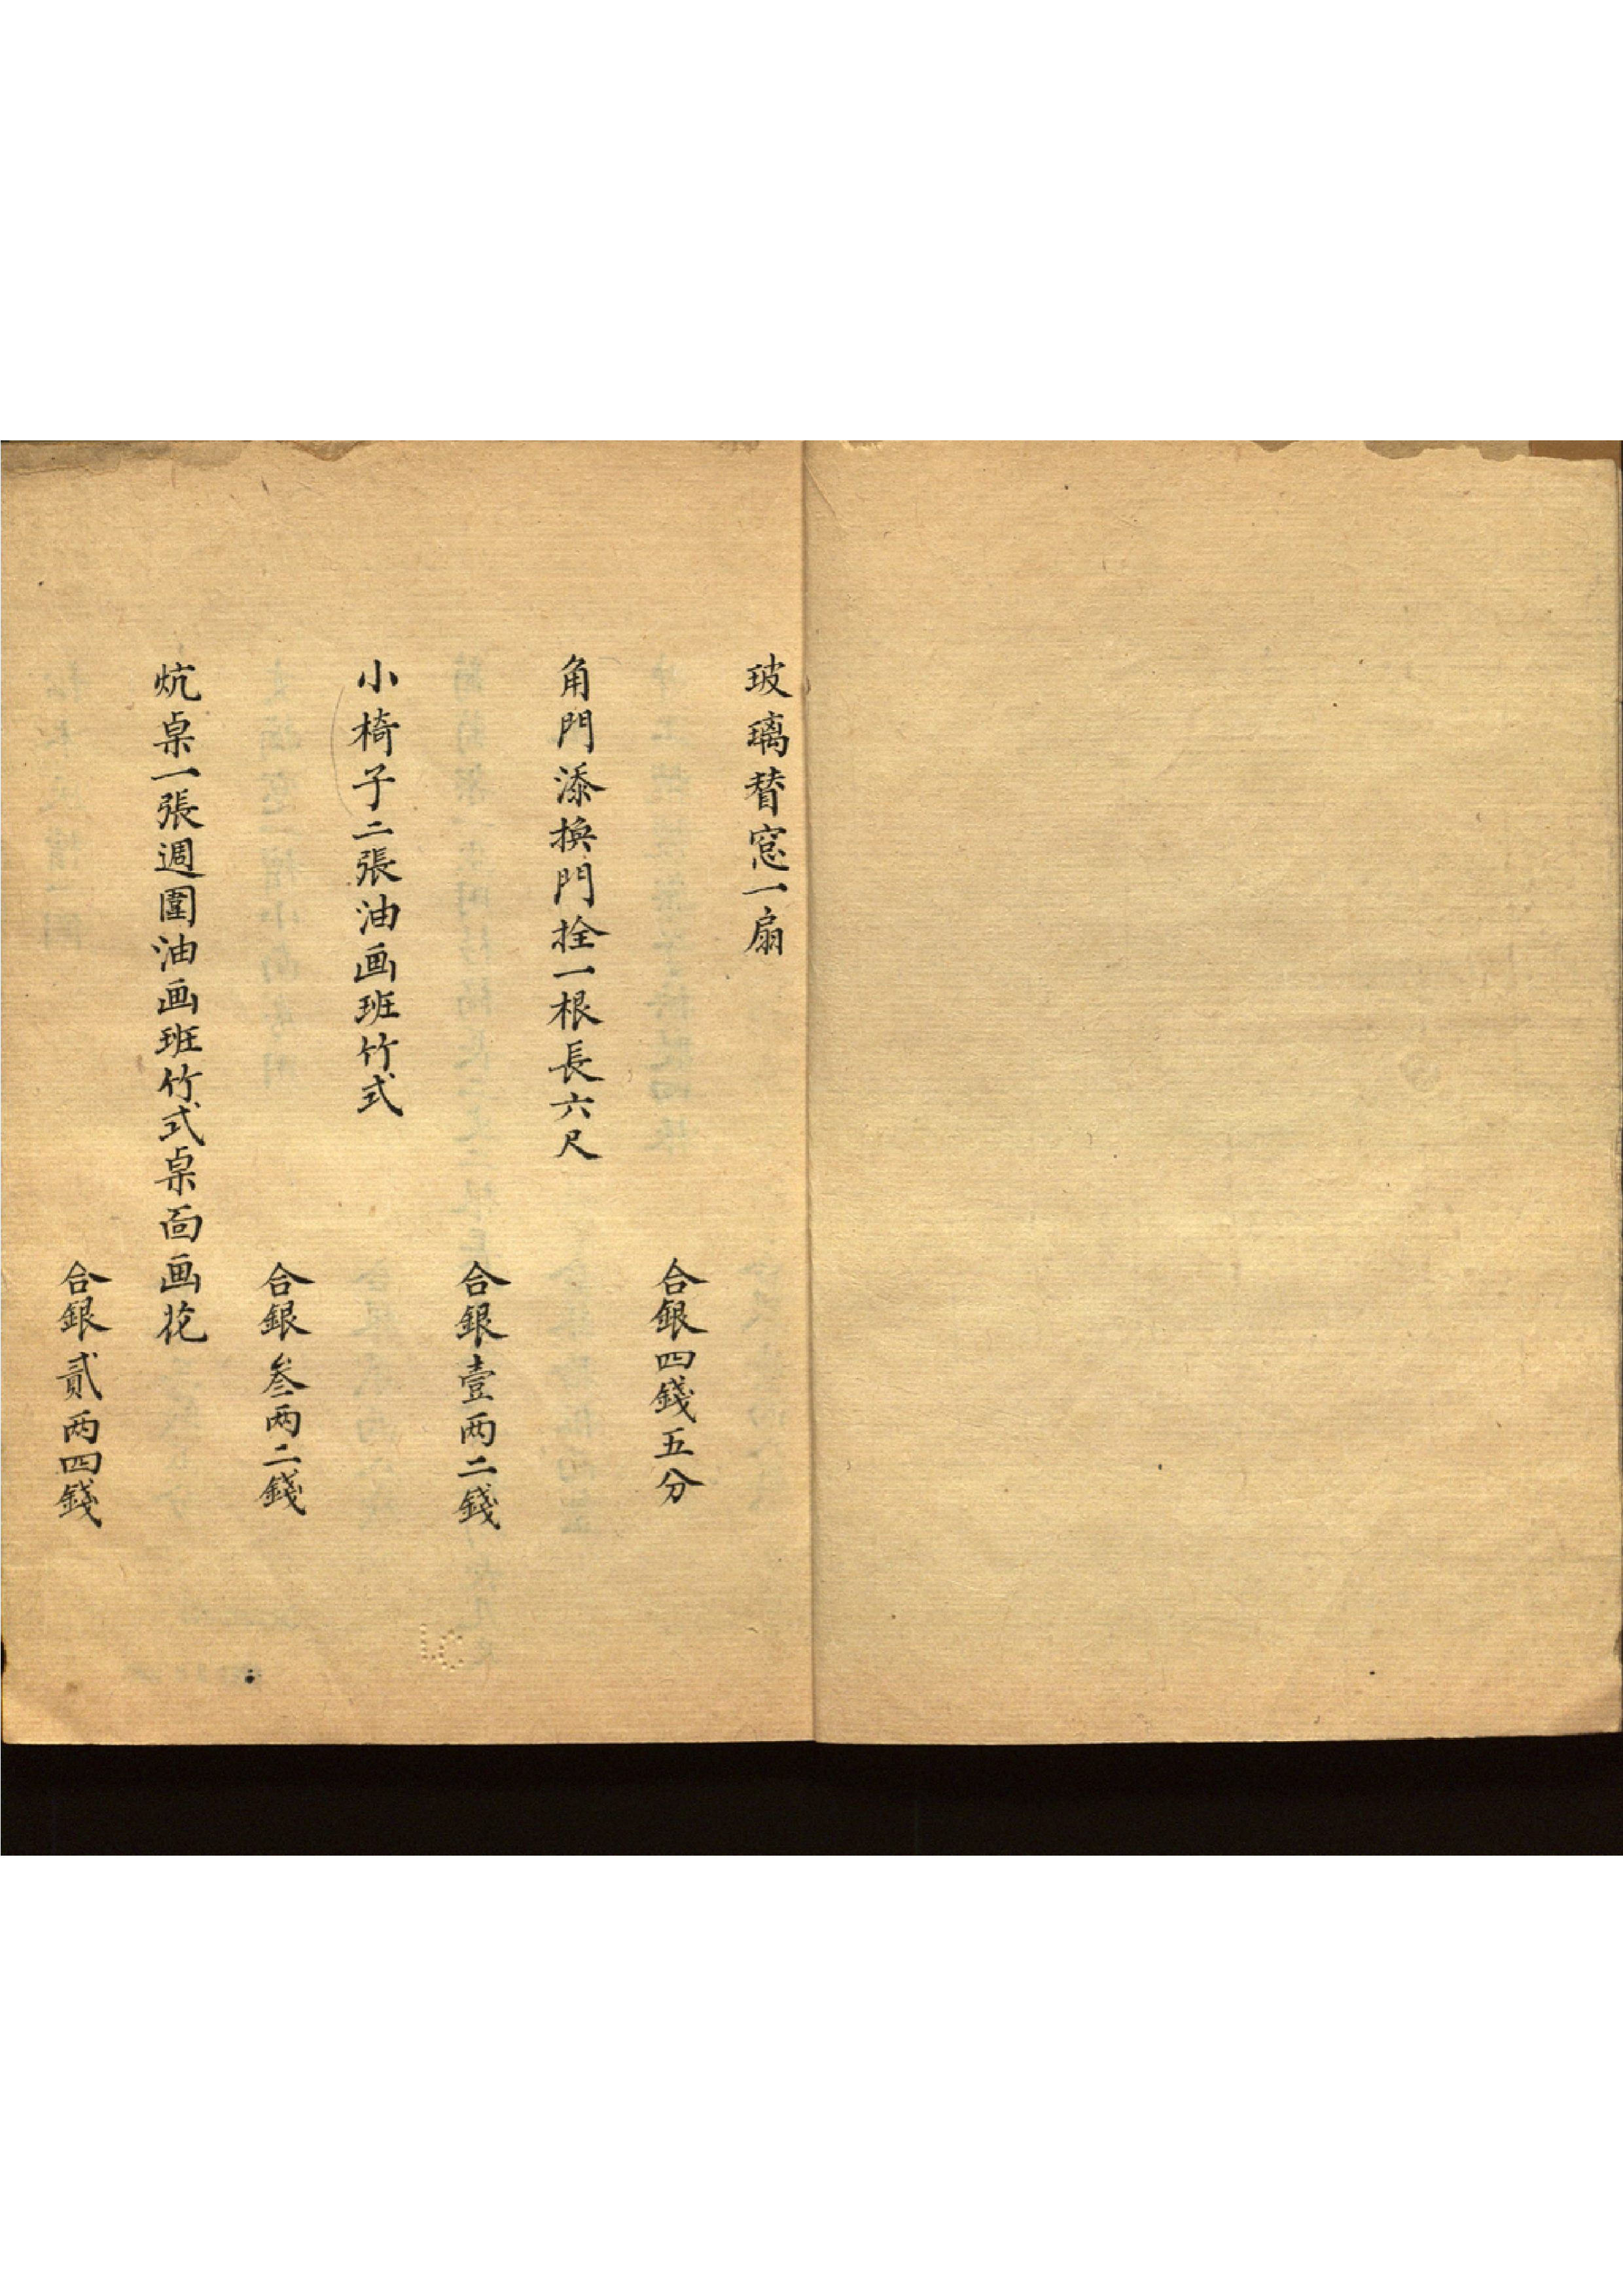 玻璃替窓一扇
合銀四錢五分
角門添換門拴一根長六尺
合銀壹两二錢
小椅子二張油画班竹式
合銀叁两二錢
炕桌一張週圍油画班竹式桌面画花
合銀貳两四錢
LC